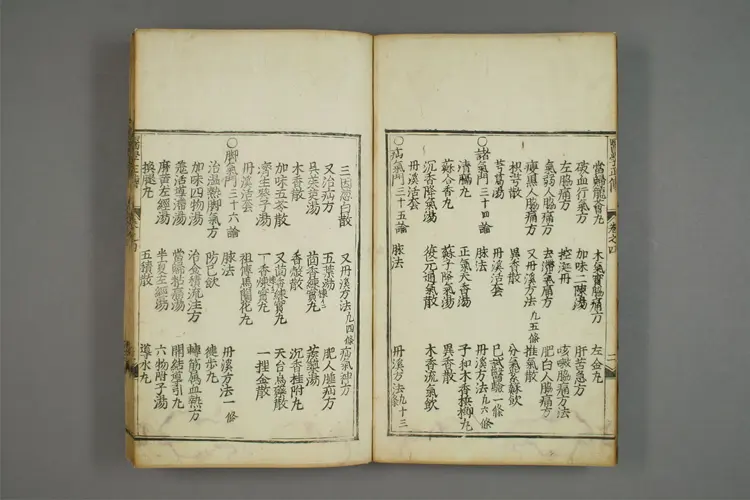 當歸龍薈丸 木氣實脇痛方 左金丸
破血行氣方 加味二陳湯 肝苦急方
左脇痛方 控涎丹 咳嗽脇痛方法
氣弱人脇痛方 去滯氣痛方 肥白人脇痛方
瘦黑人脇痛方 又丹溪方法九五條 推氣散
枳芎散 異香散 分氣紫蘇飲
芎葛湯 丹溪活套 已試醫驗一條
○諸氣門三十四論 脉法 丹溪方法九六條
清膈丸 正氣天香湯 子和木香檳榔丸
蘇合香丸 蘇子降氣湯 異香散
沉香降氣湯 復元通氣散 木香流氣飲
丹溪活套
○疝氣門三十五論 脉法 丹溪方法九十三條
三因葱白散 又丹溪方法九四條 疝氣神方
又治疝方 五葉湯 肥人腫疝方
吳茱萸湯 茴香練實丸 蒺藜湯
木香散 香殼散 沉香桂附丸
加味五苓散 又茴香練實丸 天台烏藥散
濟生葵子湯 一香練實丸 一捏金散
丹溪活套 祖傳馬蘭花丸
○脚氣門三十六論 脉法 丹溪方法一條
治濕熱脚氣方 防己飲 健步丸
加味四物湯 治食積流注方 轉筋屬血熱方
羌活導滯湯 當歸拈痛湯 開結導引丸
麻黃左經湯 半夏左經湯 六物附子湯
換腿丸 五積散 導水丸